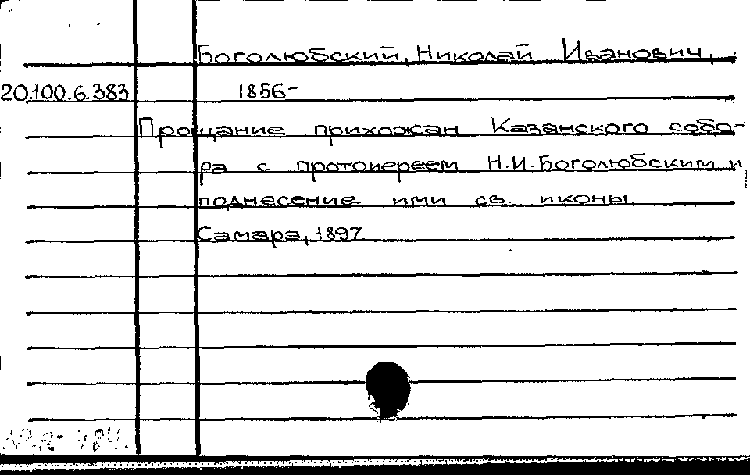 Боголюбский, Николай Иванович,
20.100.6.383 1856-
Прощание прихожан Казанского собо-
ра с протоиереем Н.И.Боголюбским и
поднесение ими св. иконы.
Самара, 1897